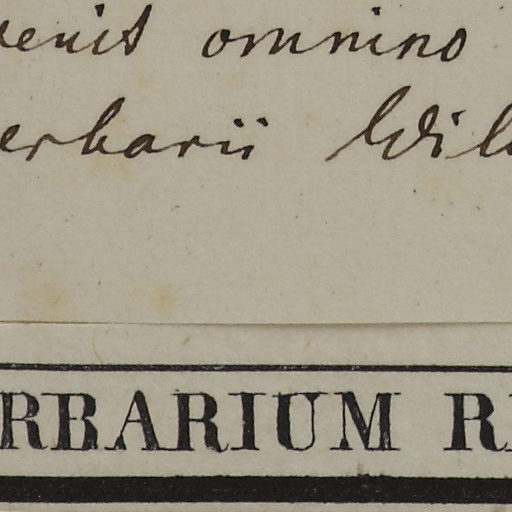 venit omnino
erbarii Wil
RBARIUM R